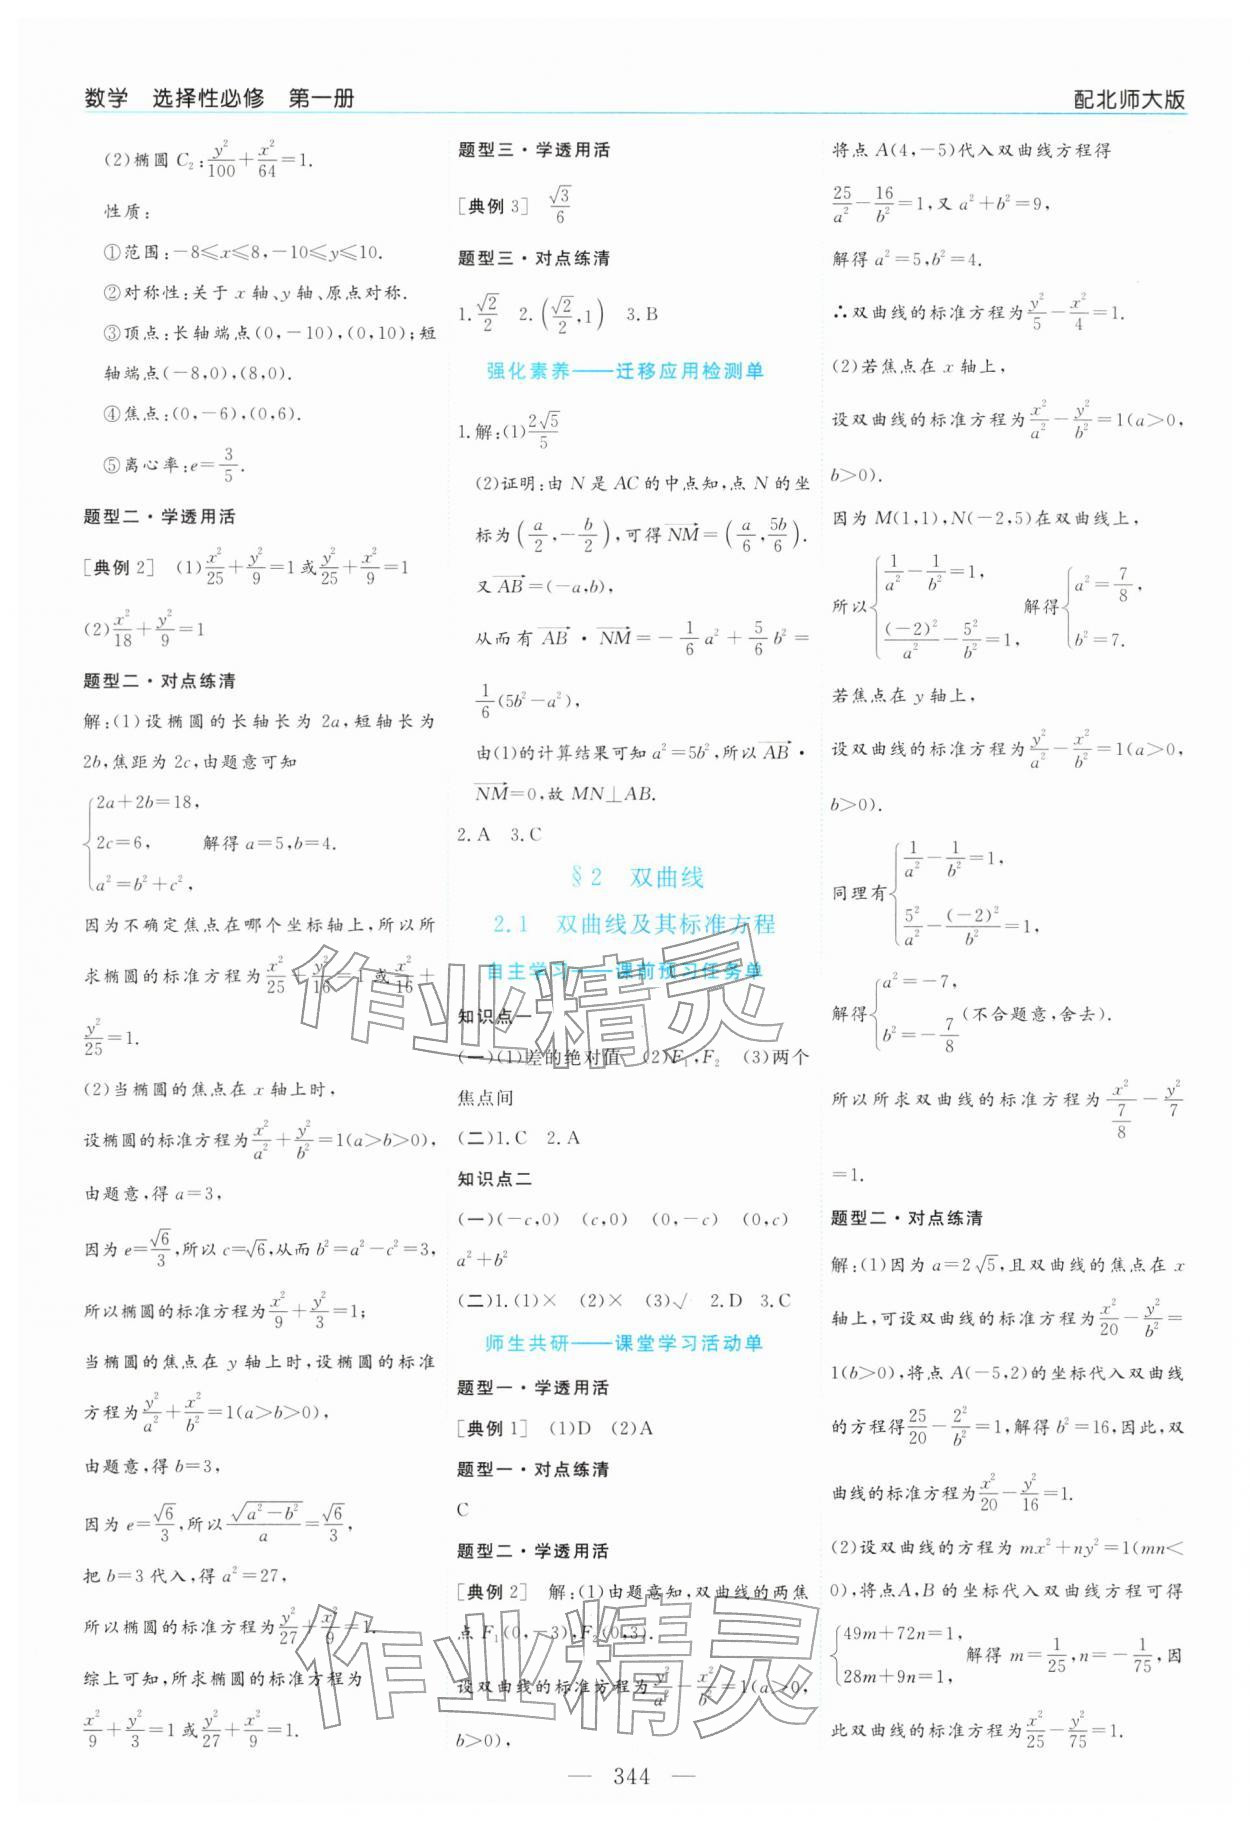 数学　选择性必修　第一册
配北师大版
(2)椭圆 C₂:y²/100+x²/64=1.
性质:
①范围:-8≤x≤8,-10≤y≤10.
②对称性:关于 x 轴、y 轴、原点对称.
③顶点:长轴端点(0,-10),(0,10);短
轴端点(-8,0),(8,0).
④焦点:(0,-6),(0,6).
⑤离心率:e=3/5.
题型二·学透用活
[典例2]　(1)x²/25+y²/9=1或y²/25+x²/9=1
(2)x²/18+y²/9=1
题型二·对点练清
解:(1)设椭圆的长轴长为 2a,短轴长为
2b,焦距为 2c,由题意可知
{2a+2b=18,
2c=6,　解得 a=5,b=4.
a²=b²+c²,
因为不确定焦点在哪个坐标轴上,所以所
求椭圆的标准方程为x²/25+y²/16=1 或x²/16+
y²/25=1.
(2)当椭圆的焦点在 x 轴上时,
设椭圆的标准方程为x²/a²+y²/b²=1(a>b>0),
由题意,得 a=3,
因为 e=√6/3,所以 c=√6,从而 b²=a²-c²=3,
所以椭圆的标准方程为x²/9+y²/3=1;
当椭圆的焦点在 y 轴上时,设椭圆的标准
方程为y²/a²+x²/b²=1(a>b>0),
由题意,得 b=3,
因为 e=√6/3,所以√(a²-b²)/a=√6/3,
把 b=3 代入,得 a²=27,
所以椭圆的标准方程为y²/27+x²/9=1.
综上可知,所求椭圆的标准方程为
x²/9+y²/3=1 或y²/27+x²/9=1.
题型三·学透用活
[典例3]　√3/6
题型三·对点练清
1.√2/2　2.(√2/2,1)　3.B
强化素养——迁移应用检测单
1.解:(1)2√5/5
(2)证明:由 N 是 AC 的中点知,点 N 的坐
标为(a/2,-b/2),可得NM→=(a/6,5b/6).
又AB→=(-a,b),
从而有AB→·NM→=-1/6a²+5/6b²=
1/6(5b²-a²),
由(1)的计算结果可知 a²=5b²,所以AB→·
NM→=0,故 MN⊥AB.
2.A　3.C
§2　双曲线
2.1　双曲线及其标准方程
自主学习——课前预习任务单
知识点一
(一)(1)差的绝对值　(2)F₁,F₂　(3)两个
焦点间
(二)1.C　2.A
知识点二
(一)(-c,0)　(c,0)　(0,-c)　(0,c)
a²+b²
(二)1.(1)×　(2)×　(3)√　2.D　3.C
师生共研——课堂学习活动单
题型一·学透用活
[典例1]　(1)D　(2)A
题型一·对点练清
C
题型二·学透用活
[典例2]　解:(1)由题意知,双曲线的两焦
点 F₁(0,-3),F₂(0,3).
设双曲线的标准方程为y²/a²-x²/b²=1(a>0,
b>0),
将点 A(4,-5)代入双曲线方程得
25/a²-16/b²=1,又 a²+b²=9,
解得 a²=5,b²=4.
∴双曲线的标准方程为y²/5-x²/4=1.
(2)若焦点在 x 轴上,
设双曲线的标准方程为x²/a²-y²/b²=1(a>0,
b>0).
因为 M(1,1),N(-2,5)在双曲线上,
所以{1/a²-1/b²=1, (-2)²/a²-5²/b²=1,　解得{a²=7/8, b²=7.
若焦点在 y 轴上,
设双曲线的标准方程为y²/a²-x²/b²=1(a>0,
b>0).
同理有{1/a²-1/b²=1, 5²/a²-(-2)²/b²=1,
解得{a²=-7, b²=-7/8(不合题意,舍去).
所以所求双曲线的标准方程为x²/(7/8)-y²/7
=1.
题型二·对点练清
解:(1)因为 a=2√5,且双曲线的焦点在 x
轴上,可设双曲线的标准方程为x²/20-y²/b²=
1(b>0),将点 A(-5,2)的坐标代入双曲线
的方程得25/20-2²/b²=1,解得 b²=16,因此,双
曲线的标准方程为x²/20-y²/16=1.
(2)设双曲线的方程为 mx²+ny²=1(mn<
0),将点A,B 的坐标代入双曲线方程可得
{49m+72n=1, 28m+9n=1, 解得 m=1/25,n=-1/75,因
此双曲线的标准方程为x²/25-y²/75=1.
— 344 —
作业精灵
作业精灵